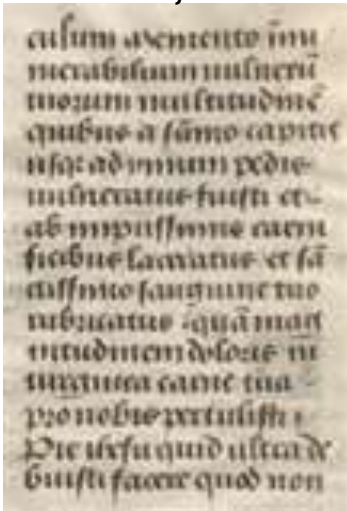 culum memento innu
merabilium vulnerū
tuorum multitudinē
quibus a sūmo capitis
usq; ad ymum pedis
vulneratus fuisti et
ab impiissimis carni
ficibus laceratus et sā
ctissimo sanguine tuo
rubricatus quā mag
nitudinem doloris in
virginea carne tua
pro nobis pertulisti
Pie ihesu quid ultra de
buisti facere quod non